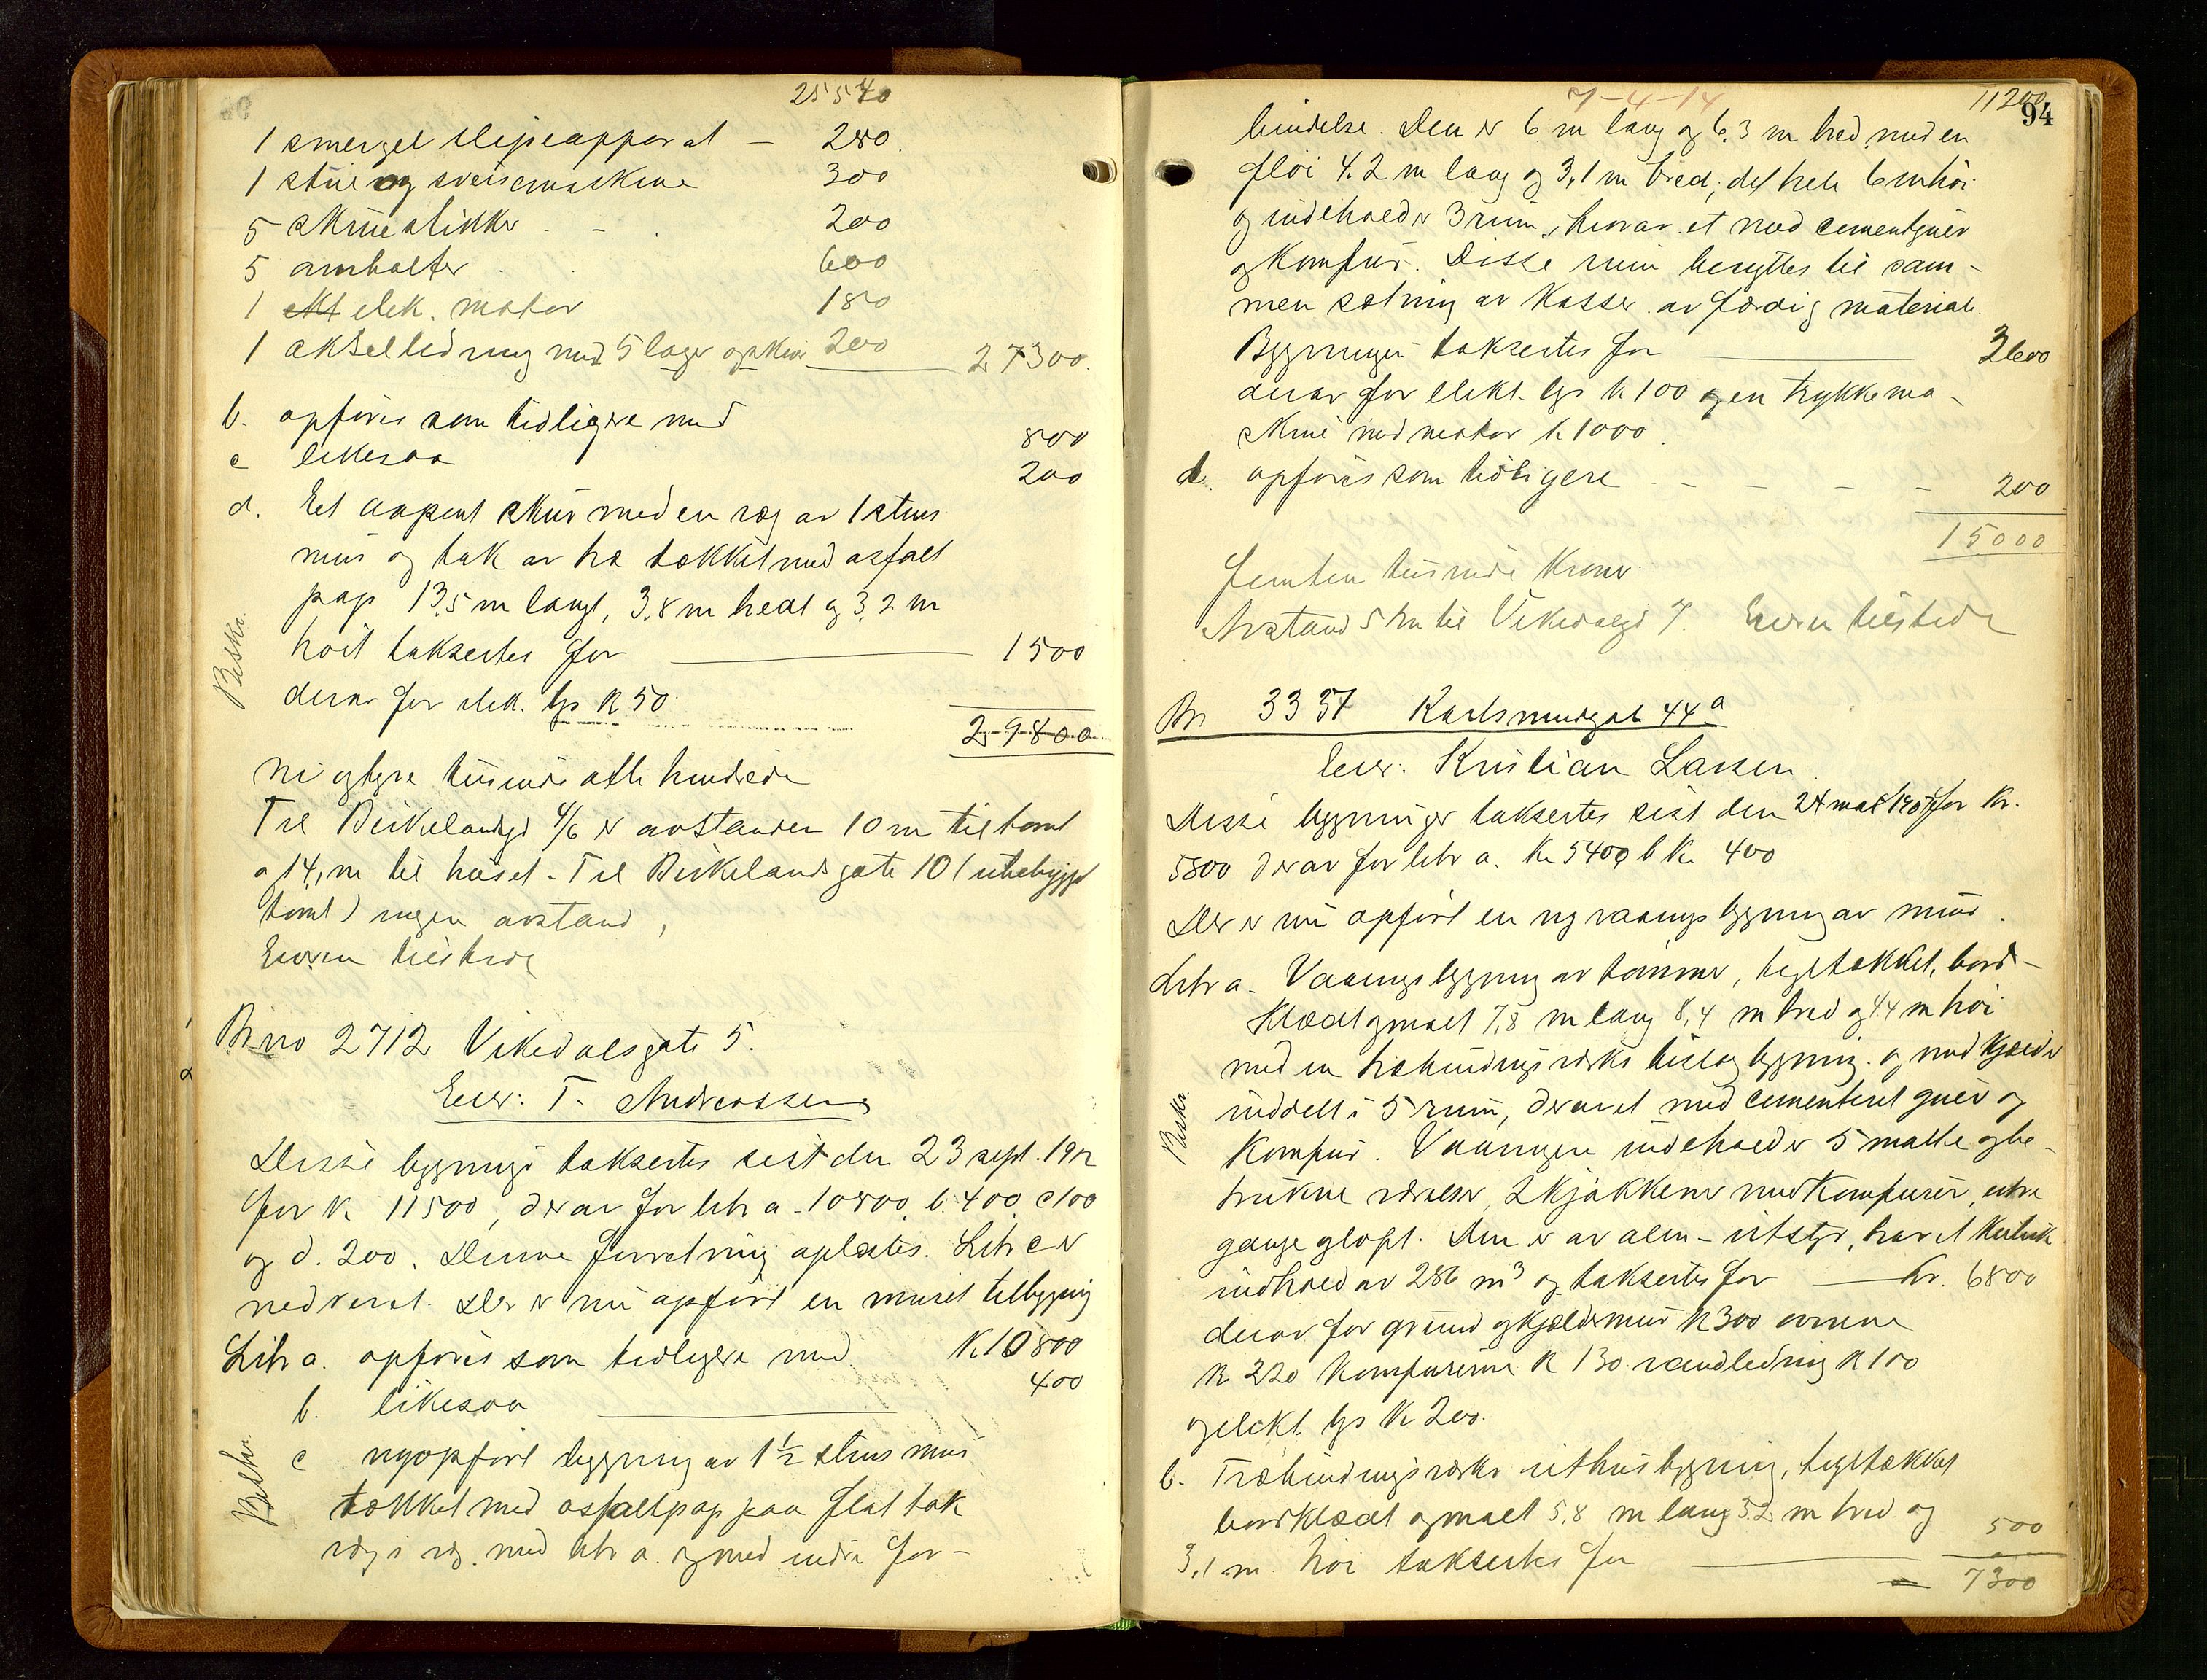 25540
1 smergel slipeapparat — 280.
1 stue og sveisemaskine 300
5 skruestikker . - . 200
5 ambolter . . 600
1 elek. motor 180
1 akselledning med 5 lager og skive 200 27300.
b. opføres som tidligere med 800
c likesaa 200
d. Et aapent skur med en væg av 1 stens
mur og tak av træ tækket med asfalt
pap 13,5 m langt, 3,8 m bredt og 3,2 m
høit taksertes for — 1500
Beskr.
derav for elek. lys K 50.
29800
Ni og tyve tusinde otte hundrede
Til Birkelandsgt 4/6 er avstanden 10 m til tomt
og 14, m til huset. Til Birkelandsgate 10 (ubebygget
tomt) ingen avstand,
Eieren tilstede
Br no 2712 Vikedalsgate 5.
Eier: T. Andreassen
Disse bygninger taksertes sist den 23 sept. 1912
for K 11500, derav for litr a. 10800, b. 400, c 100
og d. 200. Denne forretning oplæstes. Litr c er
nedrevet. Der er nu opført en muret tilbygning
Litr a. opføres som tidligere med K 10800
b. likesaa — 400
Beskr.
c nyopført bygning av 1½ stens mur
tækket med asfaltpap paa flat tak
væg i væg med litr a. og med indre for-
7-4-14
11200
94
bindelse. Den er 6 m lang og 6,3 m bred med en
fløi 4,2 m lang og 3,1 m bred; det hele 6 m høi
og indeholder 3 rum, hvorav et med cementgulv
og komfur. Disse rum benyttes til sam-
men sætning av kasser av færdig materiale.
Bygningen taksertes for — 3600
derav for elekt. lys k 100 og en trykkema-
skine med motor k 1000.
d. opføres som tidligere - - - - 200
15000
Femten tusinde Kroner
Avstand 5 m til Vikedalsgt 7. Eieren tilstede
Br 3337 Karlsmindegate 44a
Eier: Kristian Larsen
Disse bygninger taksertes sist den 24 mai 1907 for Kr.
5800 derav for litr a. Kr 5400 b Kr 400
Der er nu opført en ny vaanings bygning av mur.
Litr a. Vaaningsbygning av tømmer, tegltækket, bord-
klædt og malt 7,8 m lang 8,4 m bred og 4,4 m høi
med en træbindingsverks tillægsbygning og med kjælder
inddelt i 5 rum, derav et med cementeret gulv og
Beskr.
komfur. Vaaningen indeholder 5 malte og be-
trukne værelser, 2 kjøkkener med komfurer, entre
gange og loft. Den er av alm- utstyr, har et kubik
indhold av 286 m³ og taksertes for — Kr. 6800
derav for grund og kjældermur K 300 ovnene
K 220 komfurerne K 130 vandledning K 100
og elekt. lys Kr 200.
b. Træbindingsverks uthusbygning, tegltækket
bordklædt og malt 5,8 m lang 3,2 m bred og 500
3,1 m høi taksertes for —
7300